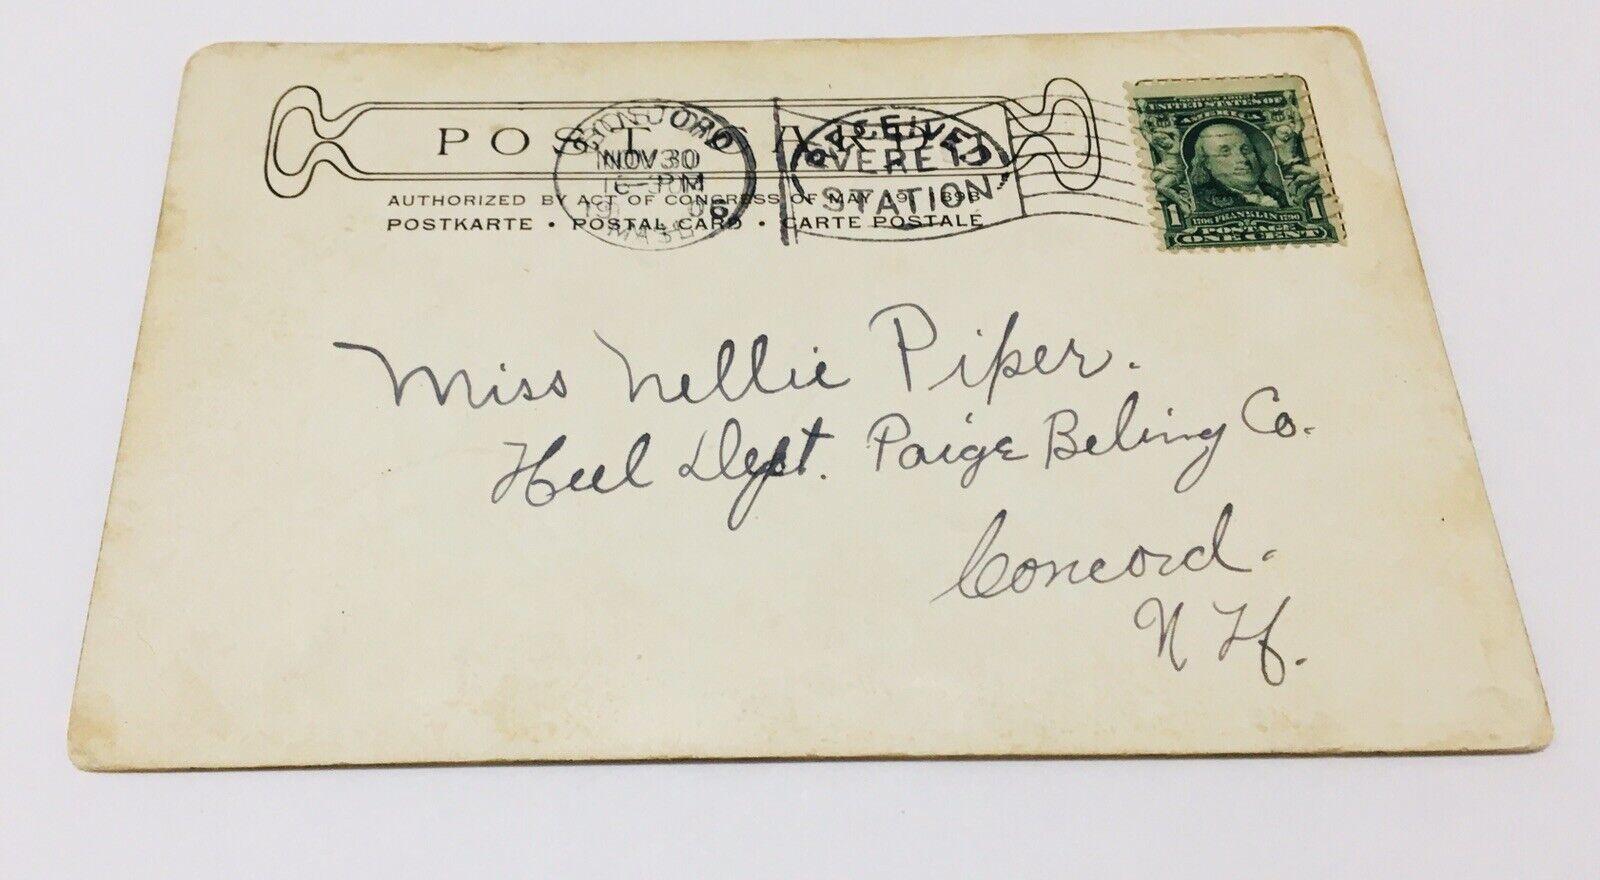 POST CARD
AUTHORIZED BY ACT OF CONGRESS OF MAY 19, 1898
POSTKARTE • POSTAL CARD • CARTE POSTALE
NOV 30
MASS
RECEIVED
STATION
UNITED STATES OF
AMERICA
1 1706 FRANKLIN 1790 1
POSTAGE
ONE CENT
Miss Nellie Piper.
Heel Dept. Paige Beling Co.
Concord.
N H.